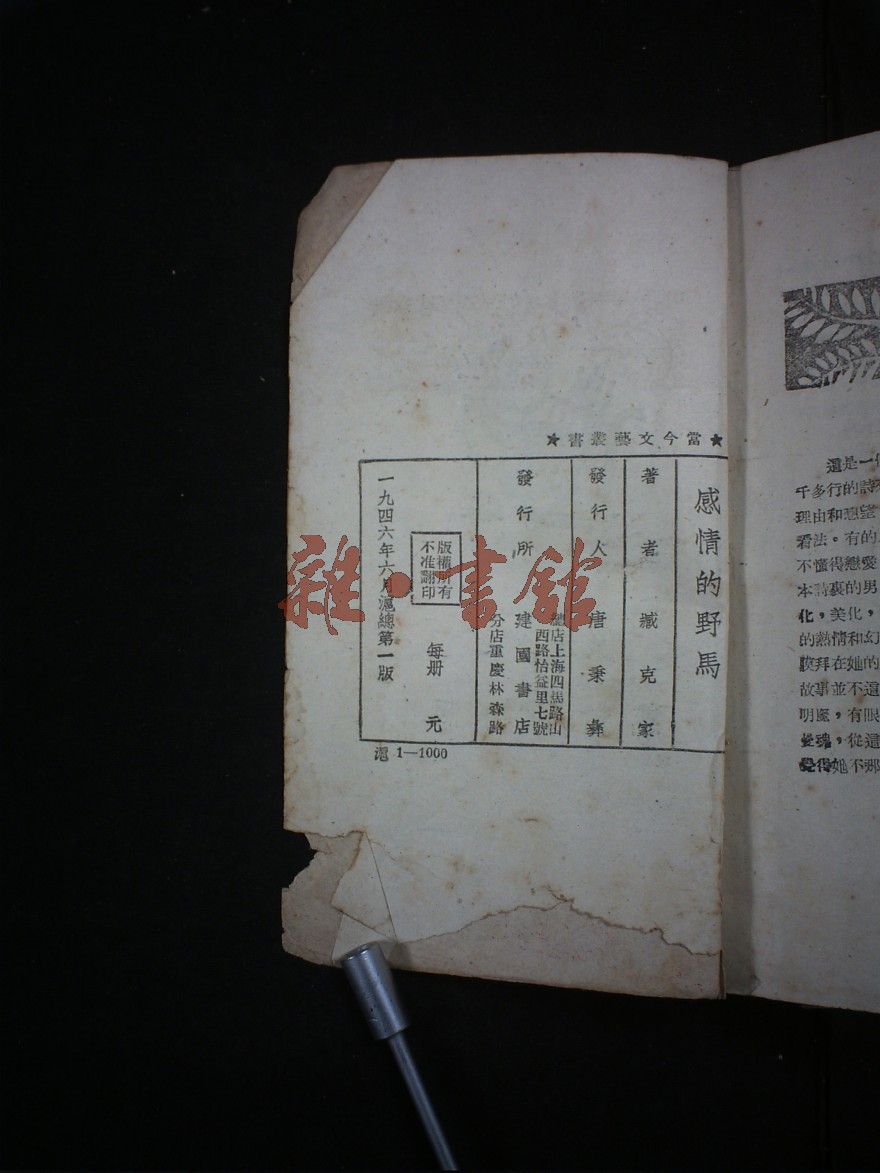 ★當今文藝叢書★
感情的野馬
著者 臧克家
發行人 唐秉彝
發行所 建國書店
總店上海四馬路山
西路怡益里七號
分店重慶林森路
版權所有
不准翻印
每册 元
一九四六年六月滬總第一版
滬 1—1000
還是一
千多行的詩
理由和慾望
看法。有的
不懂得戀愛
本詩裏的男
化,美化,
的熱情和幻
膜拜在她的
故事並不
明眸,有眼
靈魂,從這
覺得她不那
雜·書館